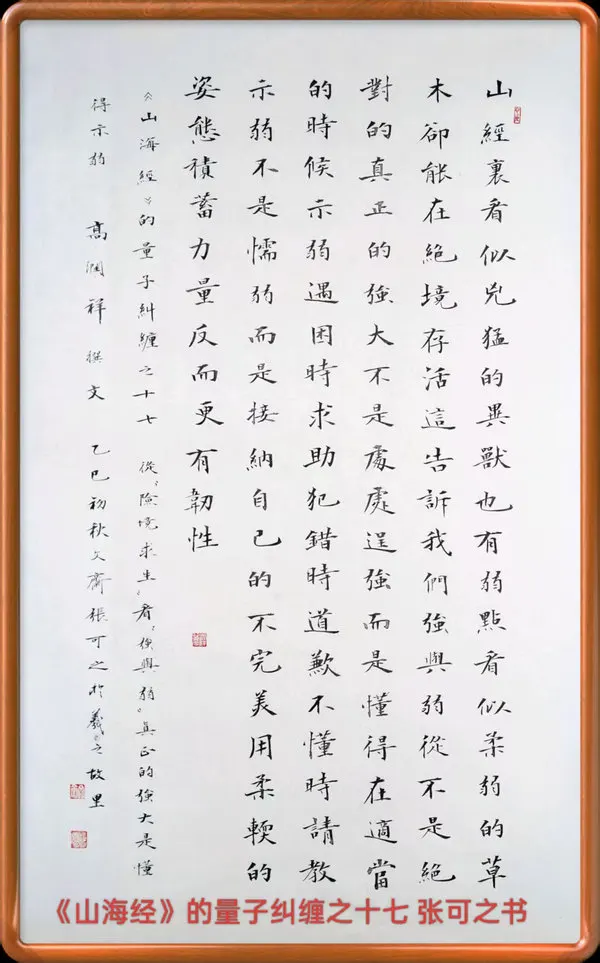 山經裏看似兇猛的異獸也有弱點看似柔弱的草
木卻能在絕境存活這告訴我們強與弱從不是絕
對的真正的強大不是處處逞強而是懂得在適當
的時候示弱遇困時求助犯錯時道歉不懂時請教
示弱不是懦弱而是接納自己的不完美用柔輭的
姿態積蓄力量反而更有韌性
《山海經》的量子糾纏之十七 從“險境求生”看“強與弱”真正的強大是懂
得示弱 高潤祥 撰文 乙巳初秋文齋張可之於羲之故里
《山海经》的量子纠缠之十七 张可之书